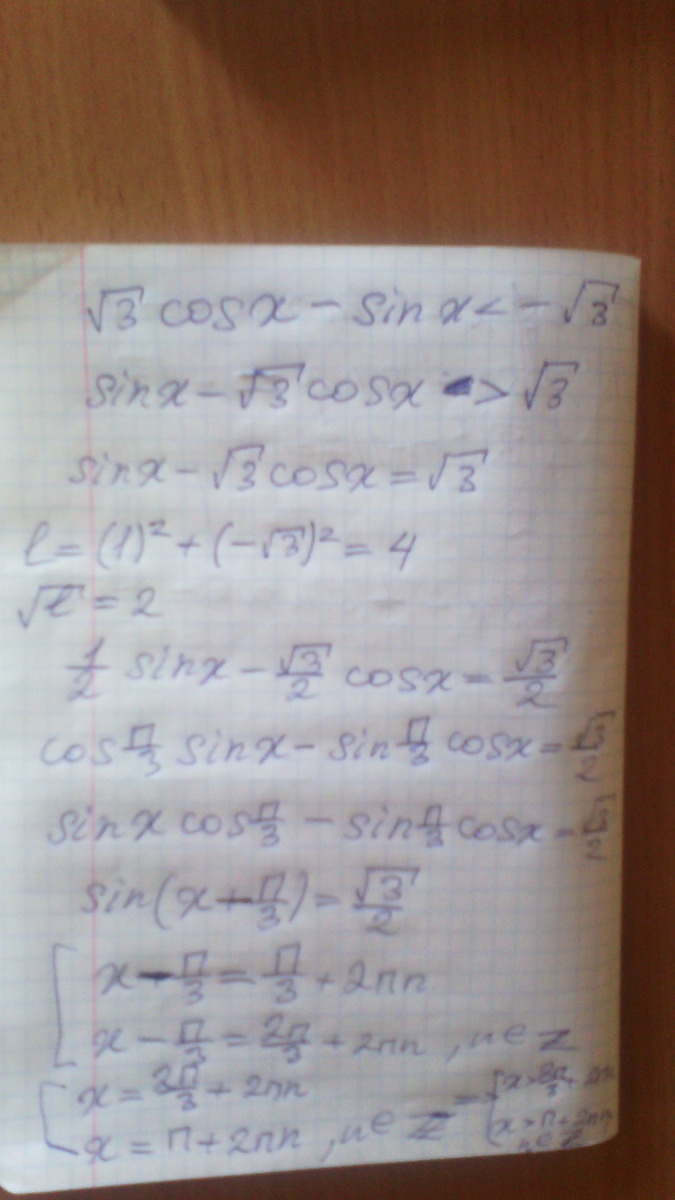 √3 cosx − sinx < −√3
sinx − √3 cosx > √3
sinx − √3 cosx = √3
l = (1)² + (−√3)² = 4
√l = 2
1/2 sinx − √3/2 cosx = √3/2
cos п/3 sinx − sin п/3 cosx = √3/2
sinx cos п/3 − sin п/3 cosx = √3/2
sin(x − п/3) = √3/2
[ x − п/3 = п/3 + 2пn
x − п/3 = 2п/3 + 2пn, n ∈ Z
[ x = 2п/3 + 2пn
x = п + 2пn, n ∈ Z => { x > 2п/3 + 2пn
x > п + 2пn
n ∈ Z